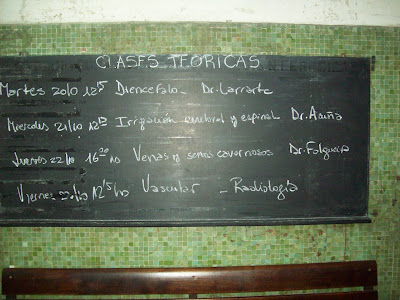 CLASES TEORICAS
Martes 20/10 12:15 Diencefalo_ Dr. Larrarte
Miercoles 21/10 12:15 Irrigación cerebral y espinal Dr. Acuña
Jueves 22/10 16:30 hs Venas y senos cavernosos Dr. Folgueira
Viernes 12:15 hs Vascular _ Radiología